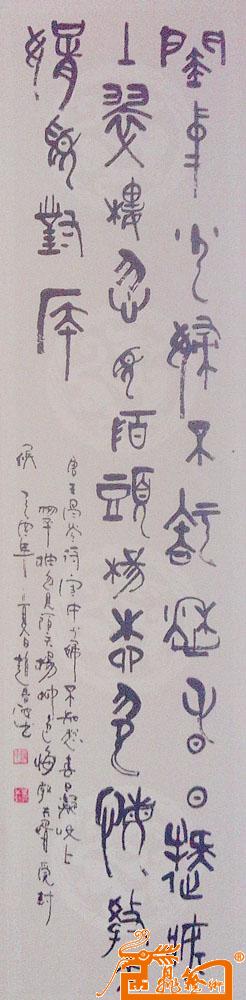 閨中少婦不知愁春日凝妝
上翠樓忽見陌頭楊柳色悔教夫
婿覓封侯
唐王昌齡詩閨中少婦不知愁春日凝妝上
翠樓忽見陌頭楊柳色悔教夫婿覓封
侯 丁酉年夏日趙